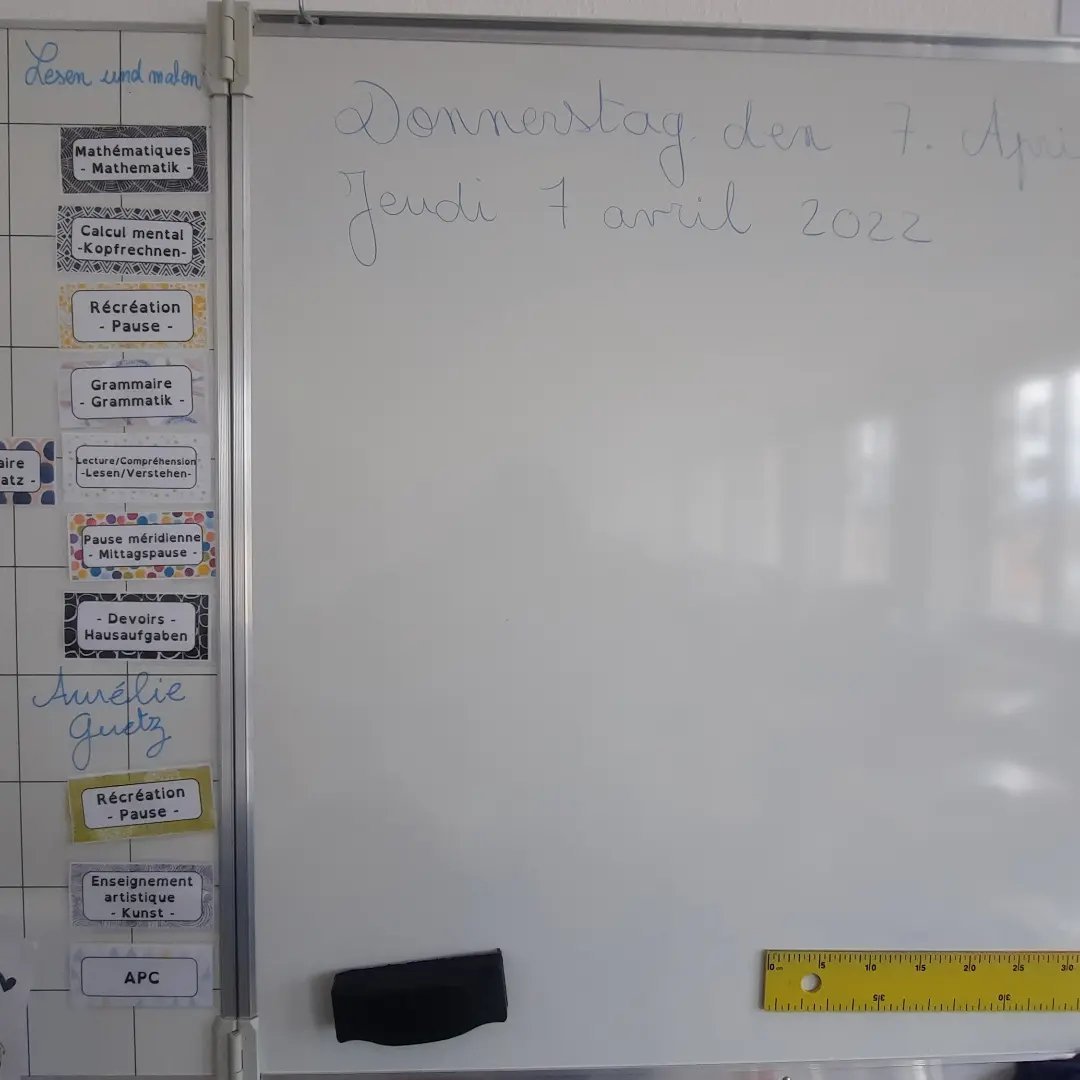 Lesen und malen
Mathématiques
- Mathematik -
Calcul mental
-Kopfrechnen-
Récréation
- Pause -
Grammaire
- Grammatik -
aire
atz -
Lecture/Compréhension
-Lesen/Verstehen-
Pause méridienne
- Mittagspause -
- Devoirs -
Hausaufgaben
Aurélie
Guetz
Récréation
- Pause -
Enseignement
artistique
- Kunst -
APC
Donnerstag den 7. Apri
Jeudi 7 avril 2022
0 cm 5 10 15 20 25 30
35 30